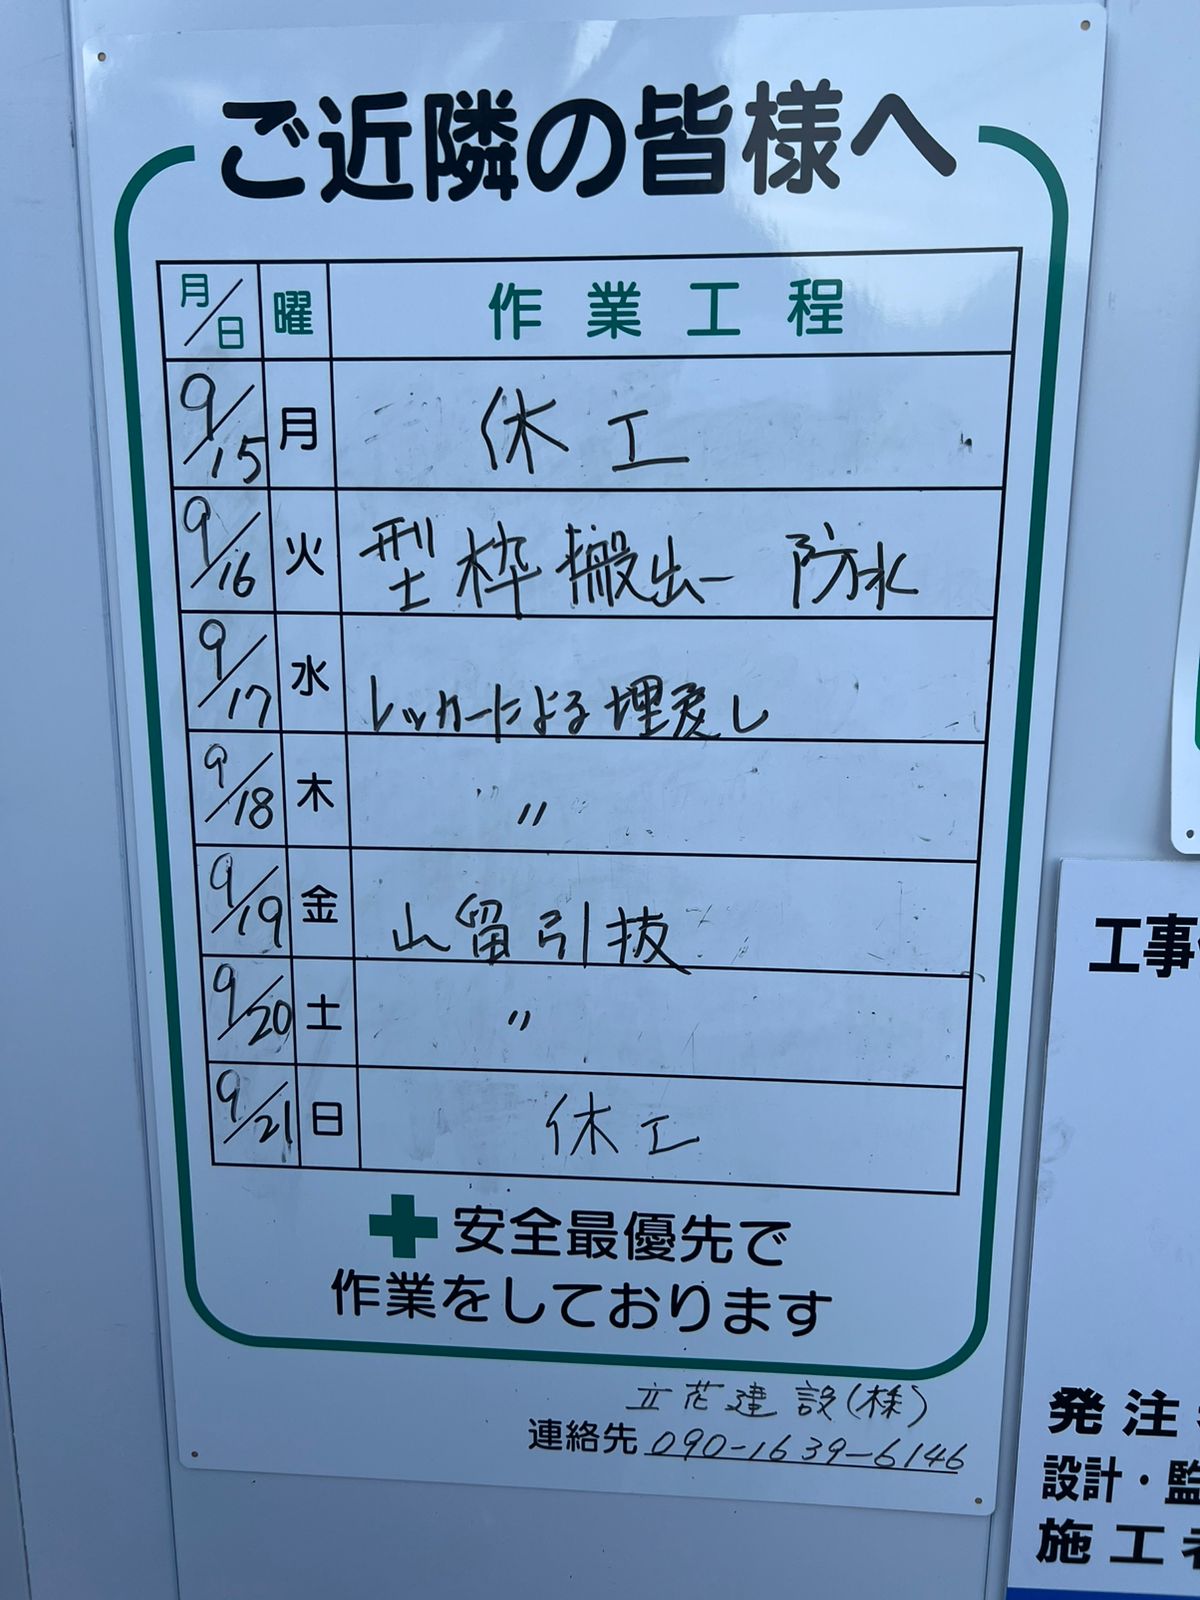 ご近隣の皆様へ
月/日 曜 作業工程
9/15 月 休工
9/16 火 型枠搬出 防水
9/17 水 レッカーによる埋戻し
9/18 木 〃
9/19 金 山留引抜
9/20 土 〃
9/21 日 休工
安全最優先で
作業をしております
立花建設(株)
連絡先 090-1639-6146
工事
発注
設計・監
施工者